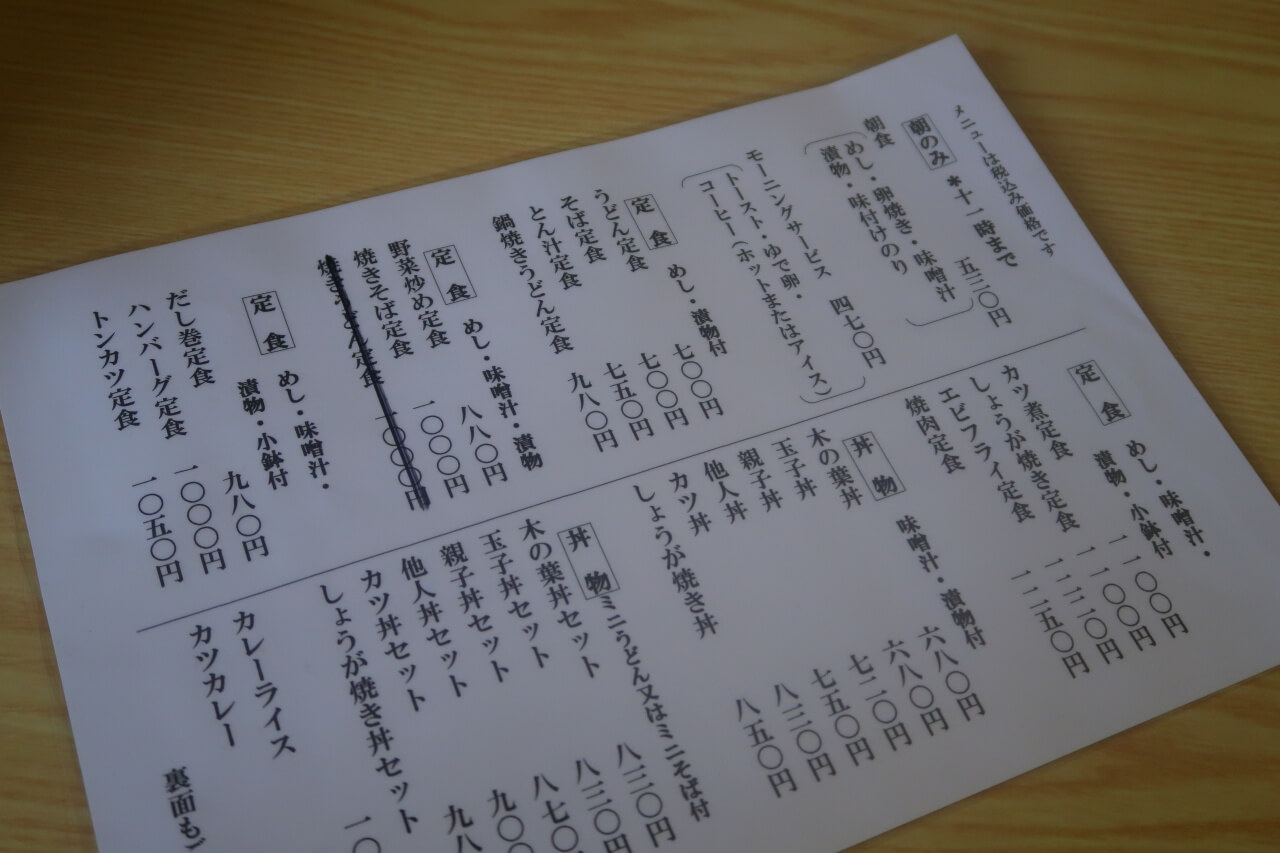 メニューは税込み価格です
朝のみ *十一時まで
朝食 五三〇円
めし・卵焼き・味噌汁
漬物・味付けのり
モーニングサービス 四七〇円
トースト・ゆで卵・
コーヒー(ホットまたはアイス)
定食 めし・漬物付
うどん定食 七〇〇円
そば定食 七〇〇円
とん汁定食 七五〇円
鍋焼きうどん定食 九八〇円
定食 めし・味噌汁・漬物
野菜炒め定食 八八〇円
焼きそば定食 一〇〇〇円
焼きうどん定食 一〇〇〇円
定食 めし・味噌汁・
漬物・小鉢付
だし巻定食 九八〇円
ハンバーグ定食 一〇〇〇円
トンカツ定食 一〇五〇円
定食 めし・味噌汁・
漬物・小鉢付
カツ煮定食 一一〇〇円
しょうが焼き定食 一一〇〇円
エビフライ定食 一二〇〇円
焼肉定食 一二五〇円
丼物 味噌汁・漬物付
木の葉丼 六八〇円
玉子丼 六八〇円
親子丼 七二〇円
他人丼 七五〇円
カツ丼 八三〇円
しょうが焼き丼 八五〇円
丼物 ミニうどん又はミニそば付
木の葉丼セット 八三〇円
玉子丼セット 八三〇円
親子丼セット 八七〇
他人丼セット 九〇〇
カツ丼セット 九八
しょうが焼き丼セット 一〇
カレーライス
カツカレー
裏面も